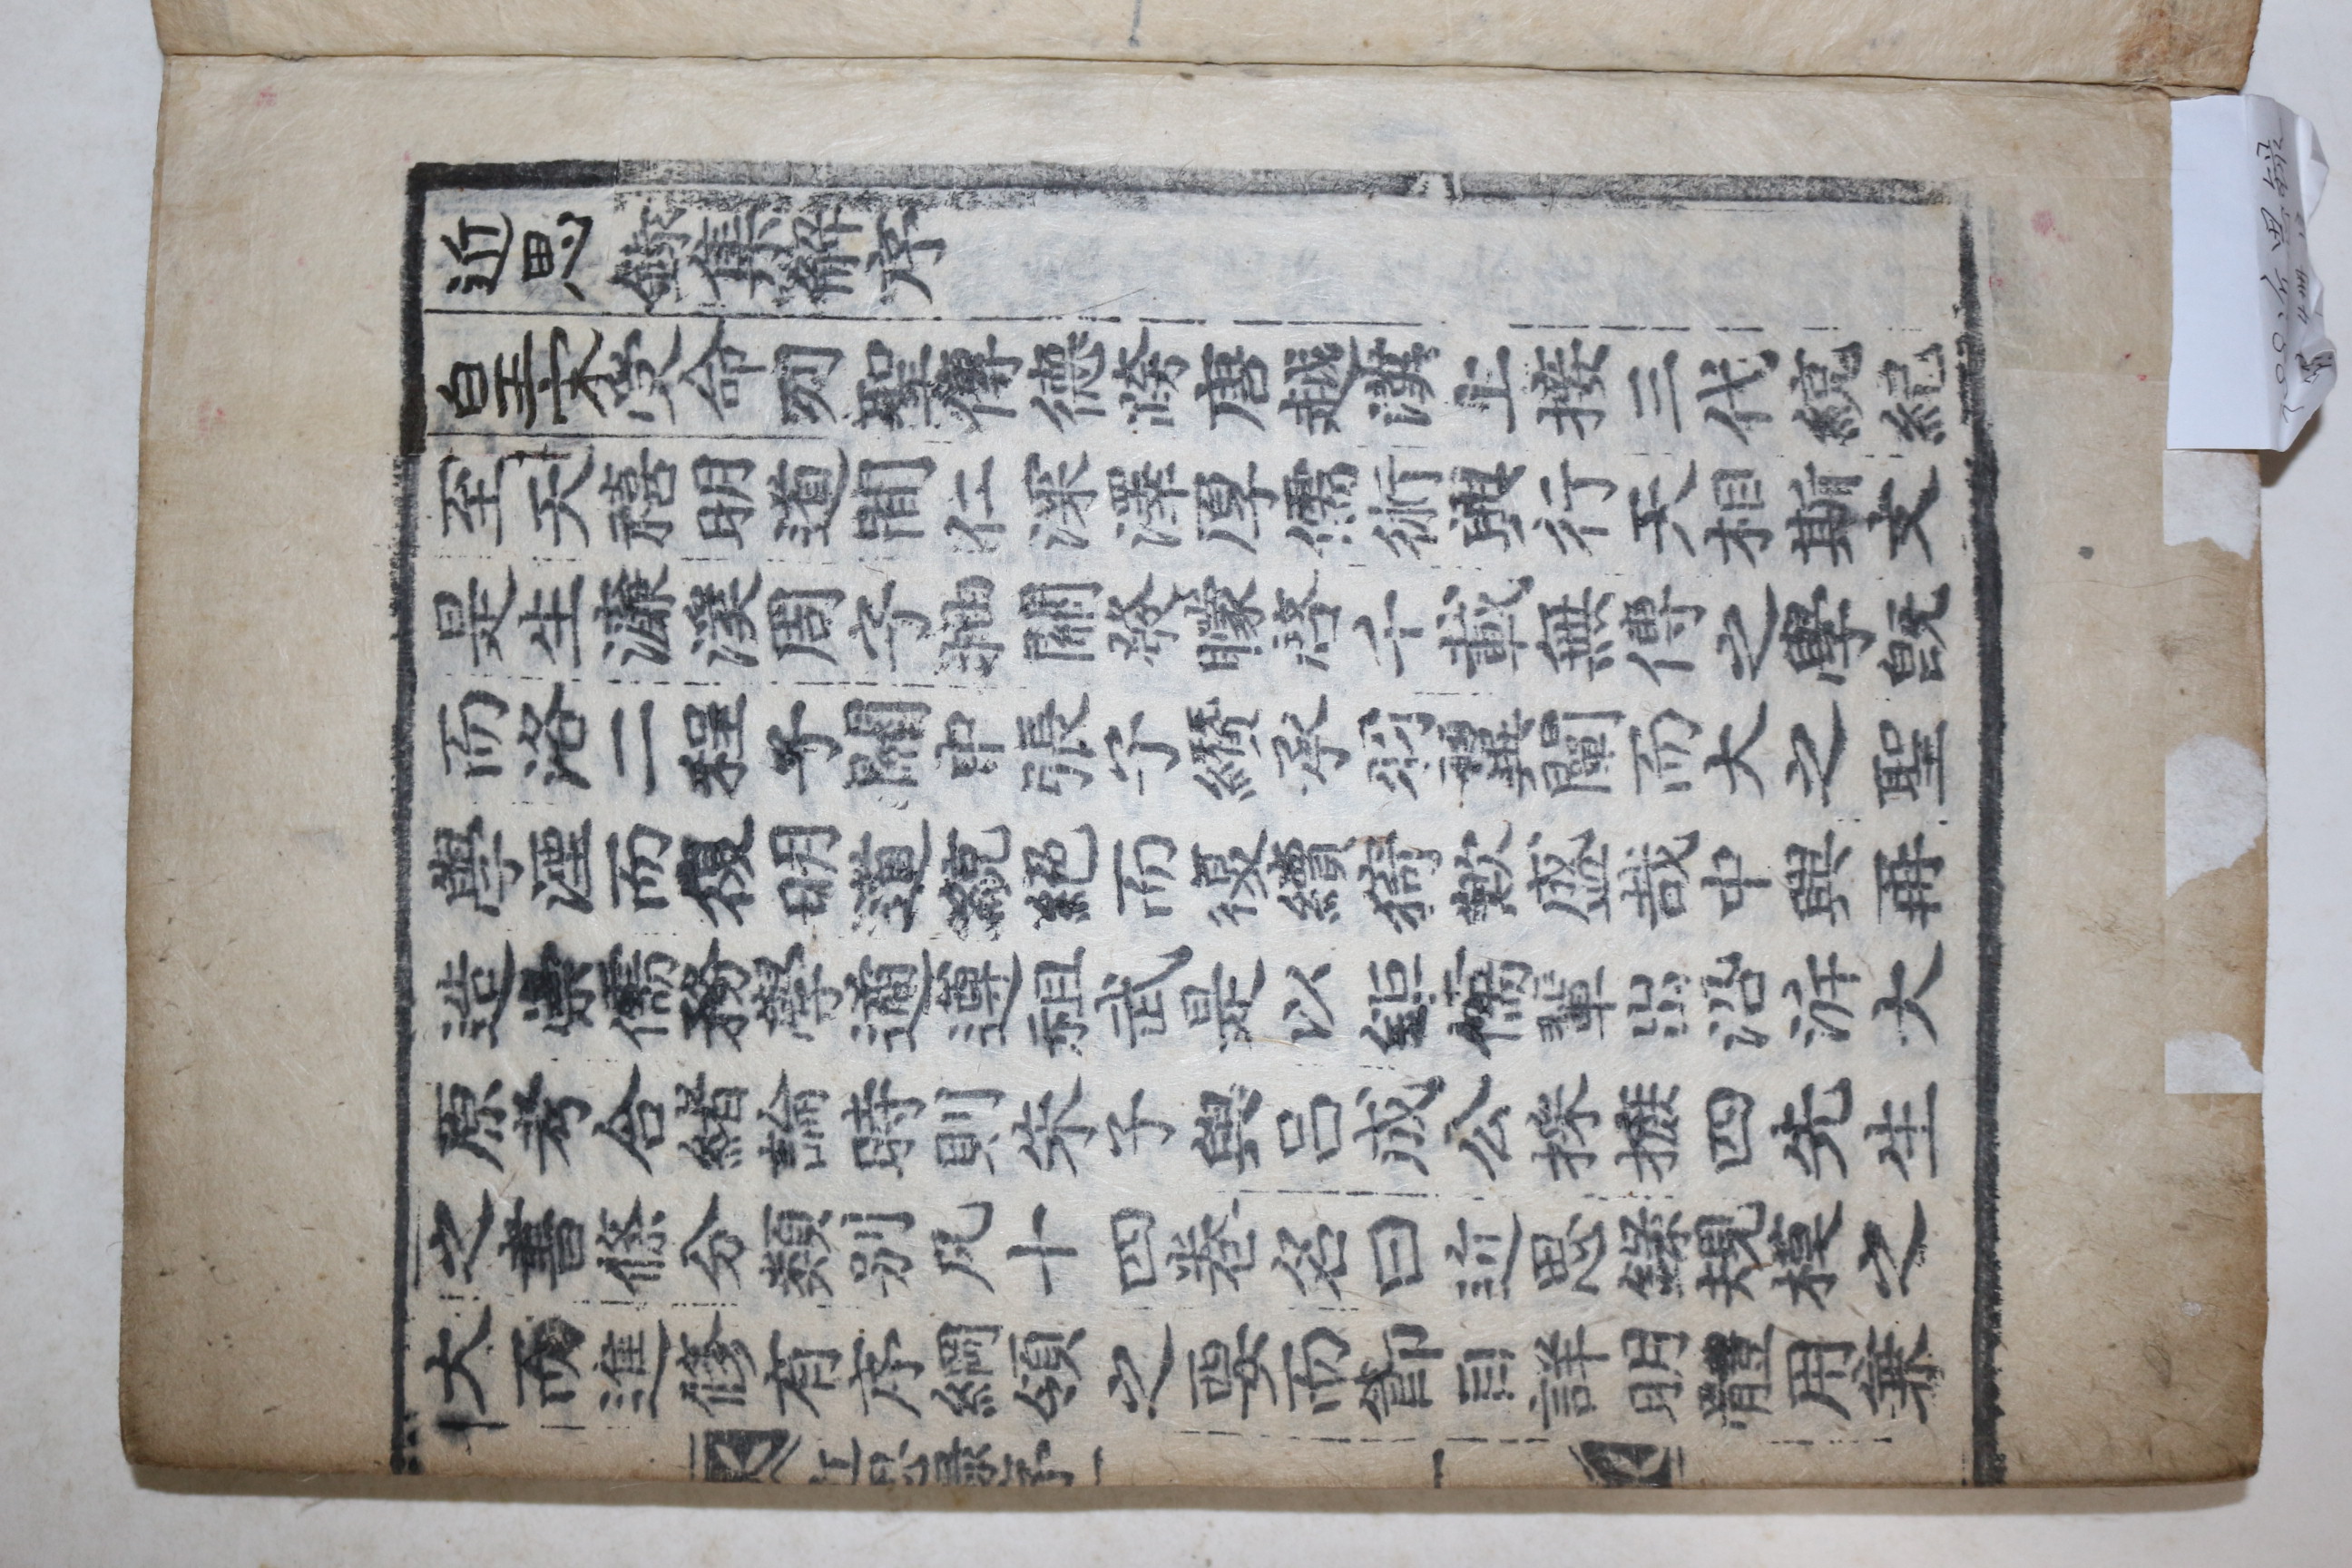 近思錄集解序
皇宋受命列聖傳德跨唐越漢上接三代統紀
至天禧明道間仁深澤厚儒術興行天相斯文
是生濂溪周子抽關發矇啓千載無傳之學旣
而洛二程子關中張子纘承羽翼闡而大之聖
學湮而復明道統絕而復續猗歟盛哉中興再
造崇儒務學遹遵祖武是以鉅儒輩出沿泝大
原考合緖論時則朱子與呂成公採摭四先生
之書條分類別凡十四卷名曰近思錄規模之
大而進修有序綱領之要而節目詳明體用兼
近思錄序
一
近思錄